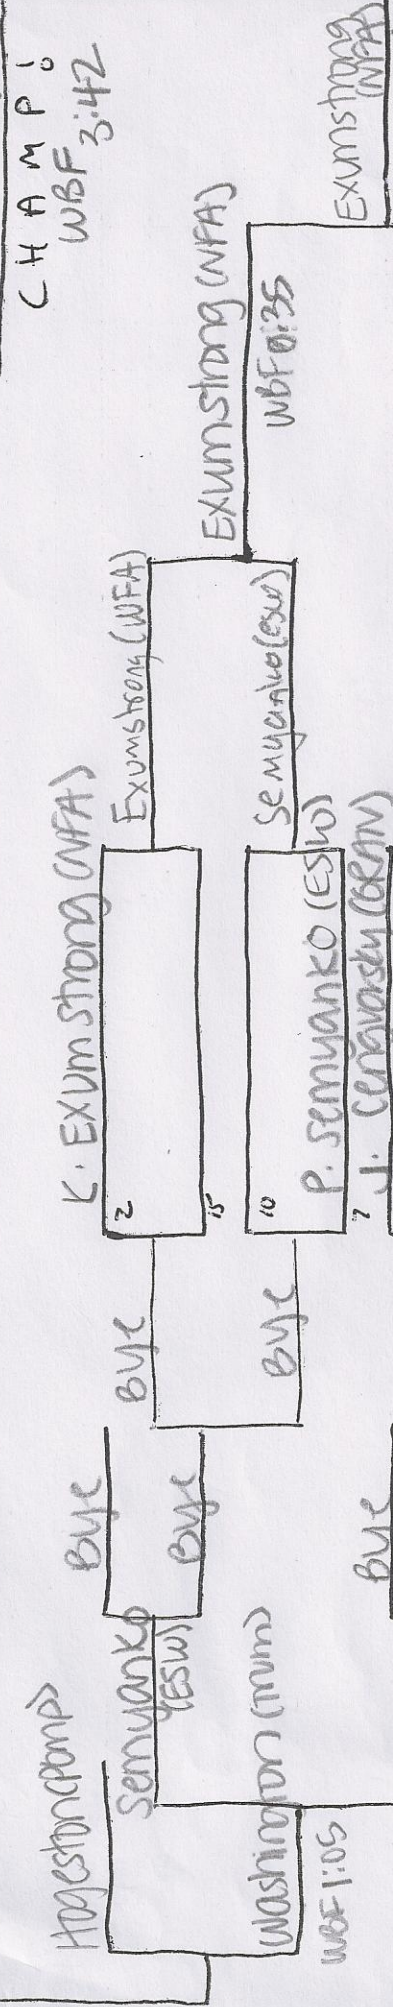 CHAMP!
WBF 3:42
Exumstrong
(NFA)
Exumstrong (NFA)
WBF 0:35
Exumstrong (NFA)
Semyanko (ESW)
K. Exumstrong (NFA)
2
15
10
P. Semyanko (ESW)
7
J. Cernavorsky (GRAN)
Bye
Bye
Bye
Bye
Bye
Semyanko
(ESW)
Hageston (Pomp)
Washington (mm)
WBF 1:05